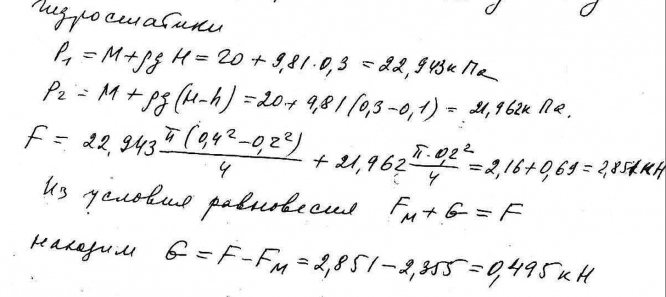 гидростатики
P₁ = M + ρg H = 20 + 9,81·0,3 = 22,943 кПа
P₂ = M + ρg (H–h) = 20 + 9,81 (0,3–0,1) = 21,962 кПа.
F = 22,943 π(0,4²–0,2²)/4 + 21,962 π·0,2²/4 = 2,16 + 0,69 = 2,851 кН
Из условия равновесия Fм + G = F
находим G = F – Fм = 2,851 – 2,355 = 0,495 кН